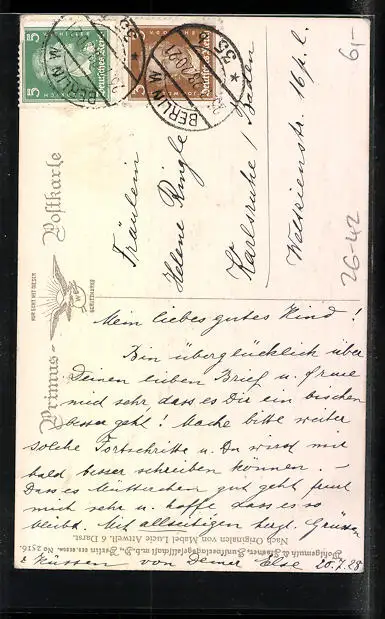 5 5
Deutsches Reich
3 3
Deutsches Reich
BERLIN W
35
BERLIN W
35
6,-
26-42
Primus-Postkarte
NUR ECHT MIT DIESER
SCHUTZMARKE
Fräulein
Helene Ringle
Karlsruhe / Baden
16 p. l.
Mein liebes gutes Kind!
Bin überglücklich über
Deinen lieben Brief u. freue
mich sehr dass es Dir ein bischen
besser geht! Mache bitte weiter
solche Fortschritte u. Du wirst mir
bald besser schreiben können. –
Dass es Mütterchen gut geht freut
mich sehr u. hoffe dass es so
bleibt. Mit allseitigen herzl. Grüssen
u Küssen von Deiner Else 20.7.28
Nach Originalen von Mabel Lucie Attwell, 6 Darst.
Wohlgemuth & Lissner, Kunstverlagsgesellschaft m.b.H., Berlin
No 2516.